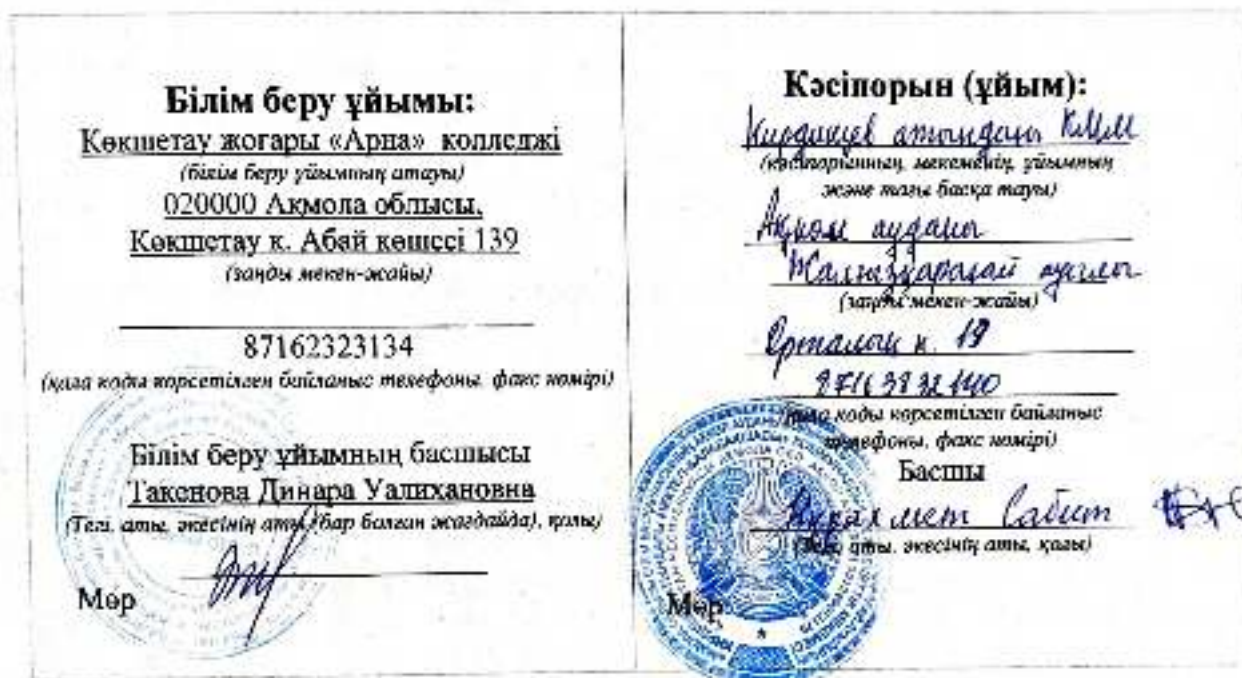 Білім беру ұйымы:
Көкшетау жоғары «Арна» колледжі
(білім беру ұйымның атауы)
020000 Ақмола облысы,
Көкшетау қ. Абай көшесі 139
(заңды мекен-жайы)
87162323134
(қала коды көрсетілген байланыс телефоны, факс нөмірі)
Білім беру ұйымның басшысы
Такенова Динара Уалихановна
(Тегі, аты, әкесінің аты (бар болған жағдайда), қолы)
Мөр
Кәсіпорын (ұйым):
атындағы КММ
(кәсіпорынның, мекеменің, ұйымның
және тағы басқа тауы)
Аққөл ауданы
Жалғызқарағай ауылы
(заңды мекен-жайы)
Орталық к. 19
87163832140
(қала коды көрсетілген байланыс
телефоны, факс нөмірі)
Басшы
Сабит
(Тегі, аты, әкесінің аты, қолы)
Мөр